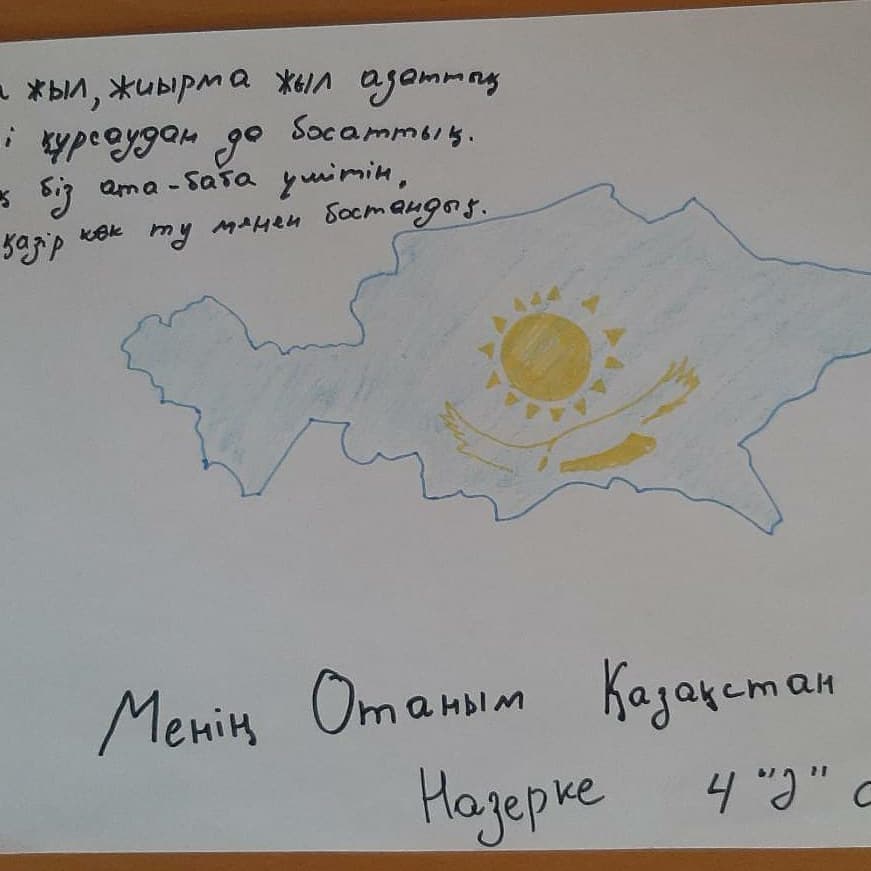 жыл, жиырма жыл азаттық
құрсаудан да босаттық.
біз ата-баба үмітін,
қазір көк ту менен бостандық.
Менің Отаным Қазақстан
Назерке 4 "д"